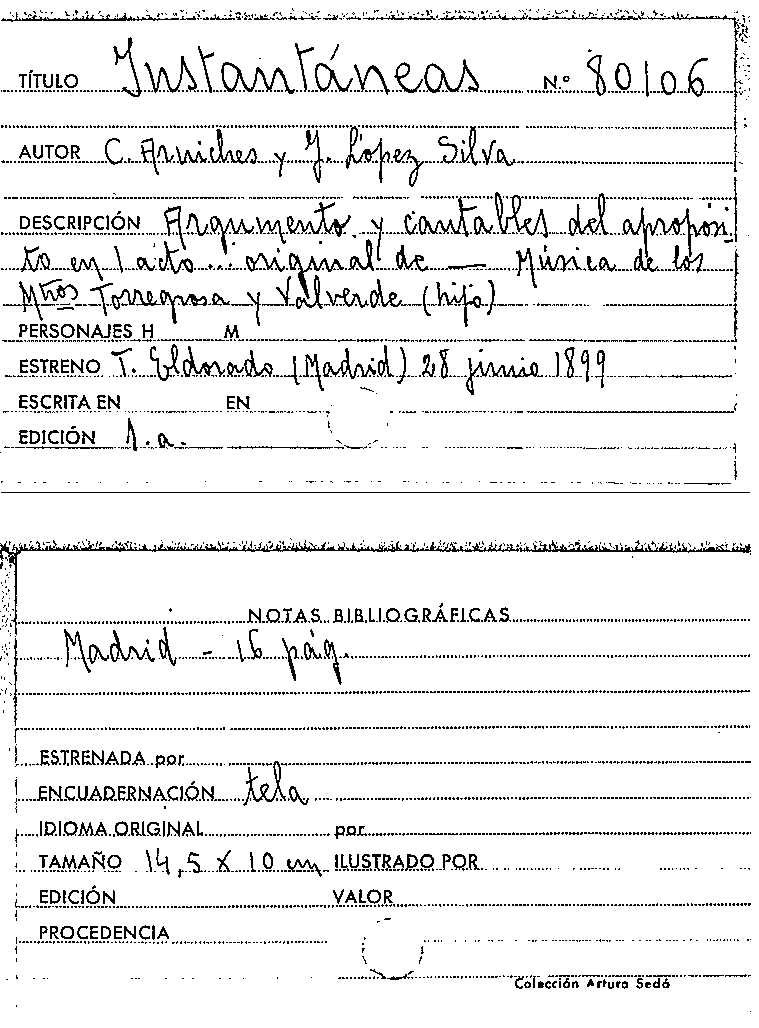 TÍTULO Instantáneas N.º 80106
AUTOR C. Arniches y J. López Silva
DESCRIPCIÓN Argumento y cantables del apropósi-
to en 1 acto... original de — Música de los
Mtros Torregrosa y Valverde (hijo)
PERSONAJES H M
ESTRENO T. Eldorado (Madrid) 28 junio 1899
ESCRITA EN EN
EDICIÓN 1.a.
NOTAS BIBLIOGRÁFICAS
Madrid - 16 pág.
ESTRENADA por
ENCUADERNACIÓN tela
IDIOMA ORIGINAL por
TAMAÑO 14,5 X 10 cm ILUSTRADO POR
EDICIÓN VALOR
PROCEDENCIA
Colección Arturo Sedó